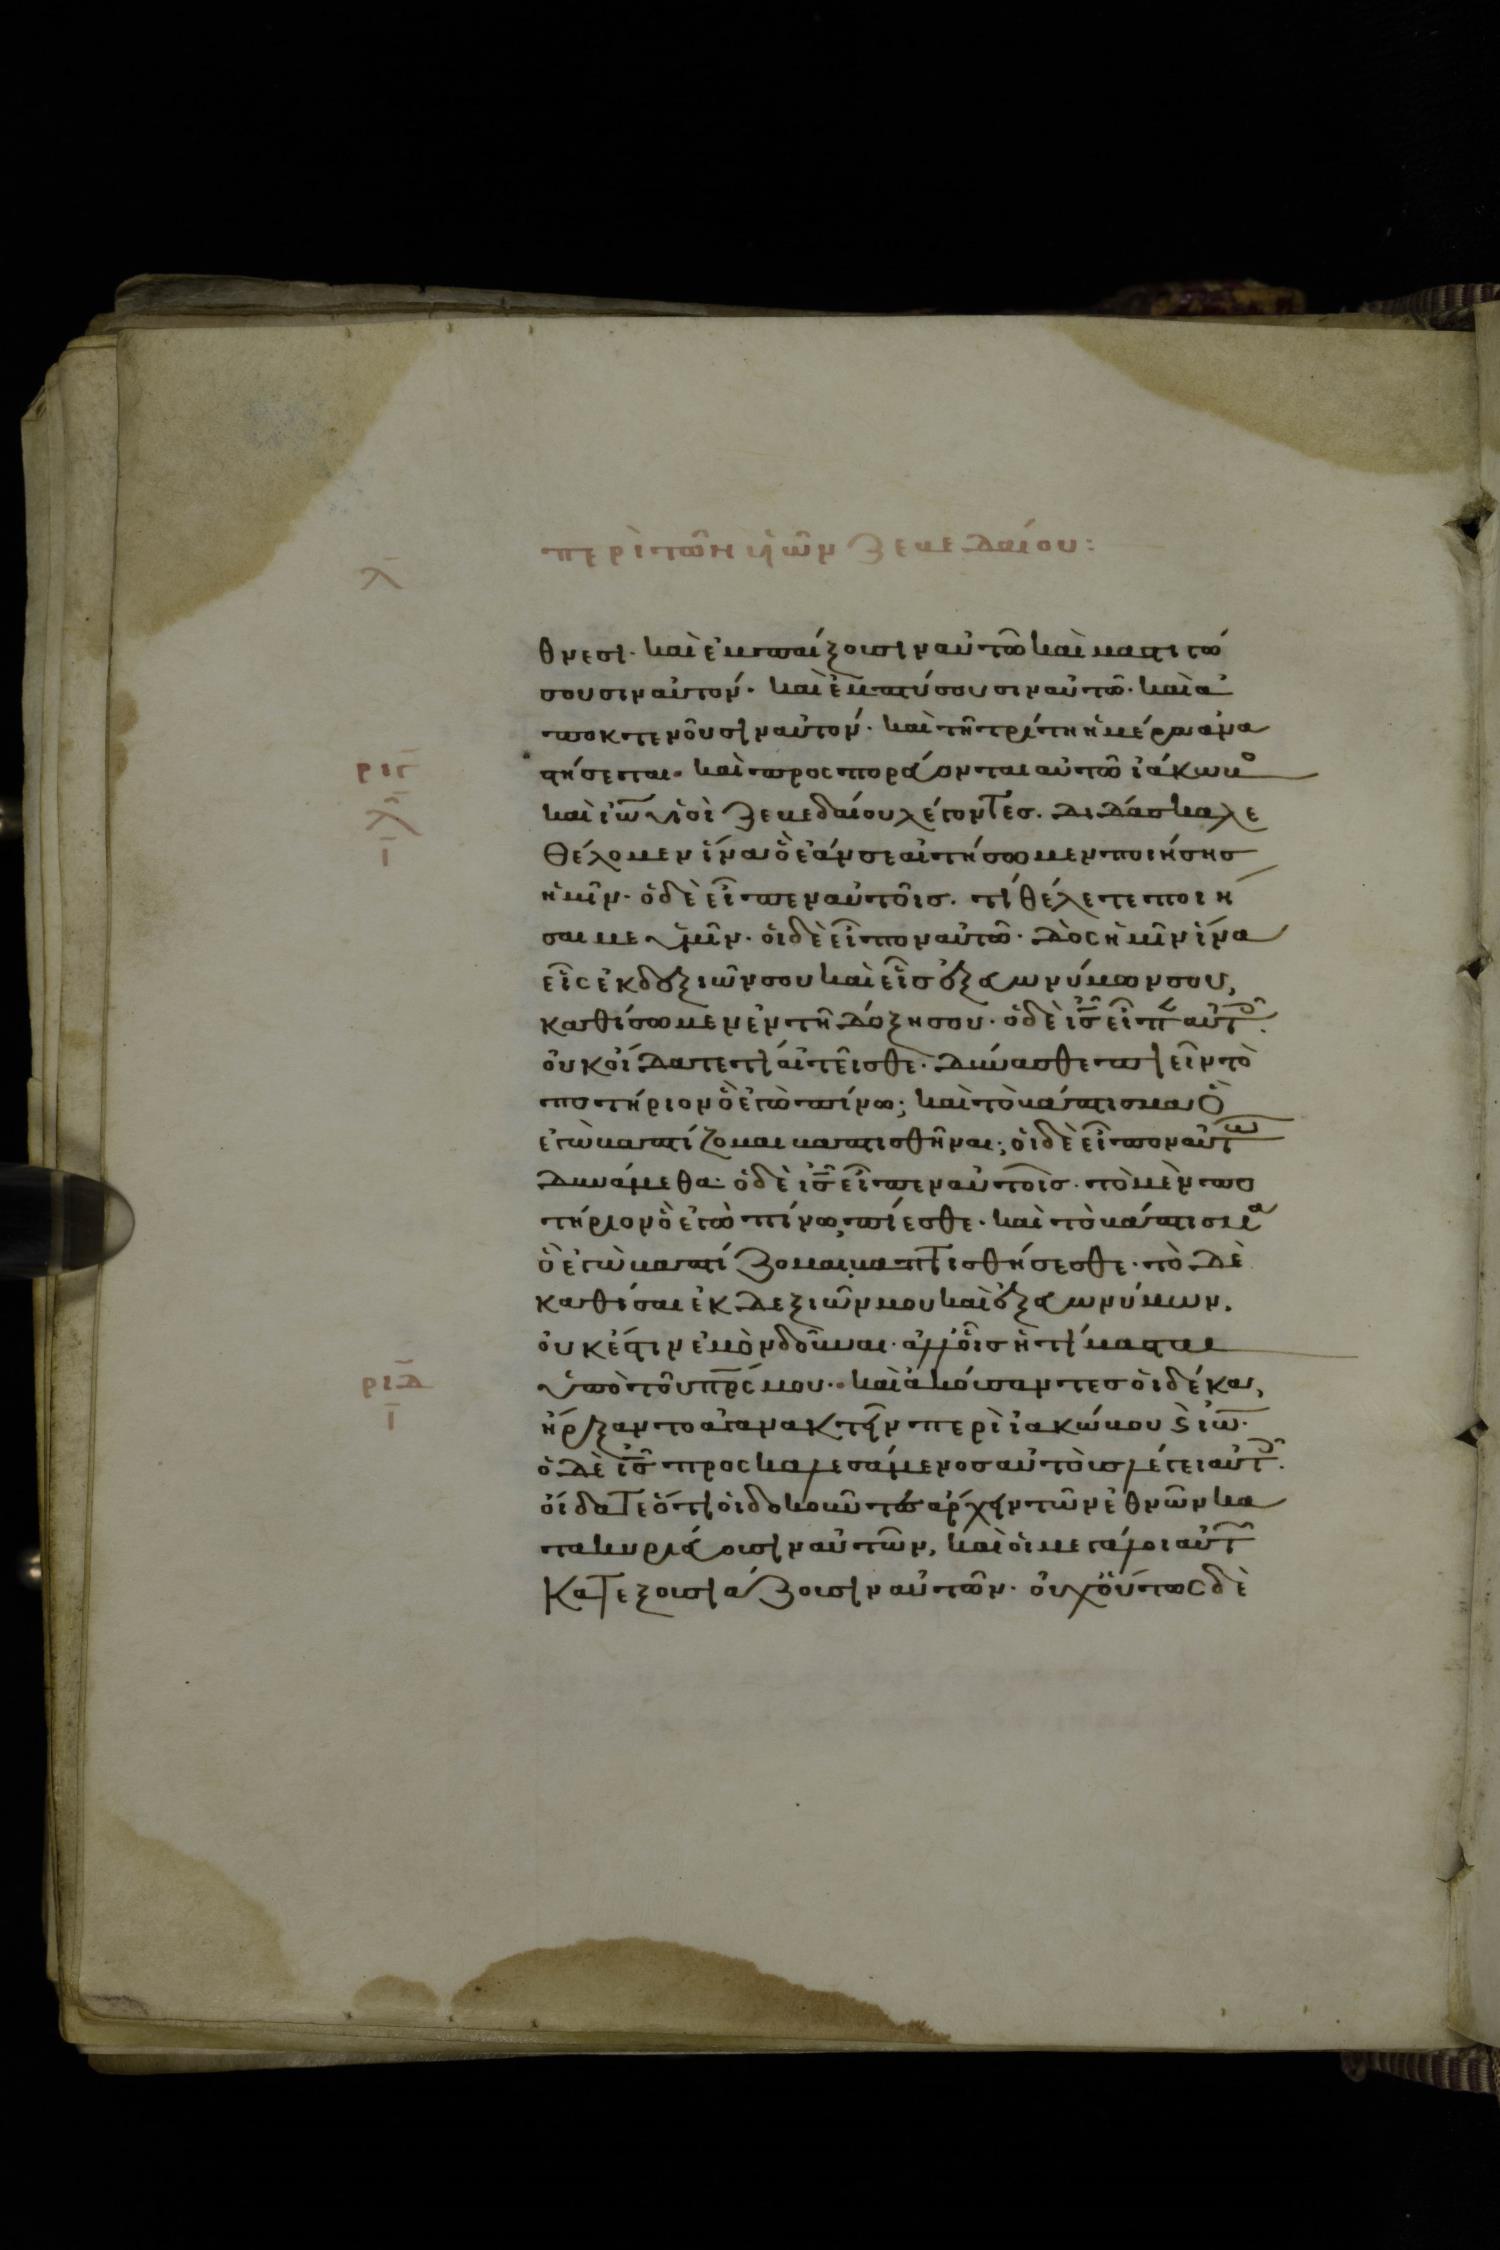 περὶ τῶν υἱῶν ζεβεδαίου:
λ
θνεσι· καὶ ἐμπαίξουσιν αὐτῶ καὶ μαστιγώ
σουσιν αὐτόν· καὶ ἐμπτύσουσιν αὐτῶ· καὶ ἀ
ποκτενοῦσιν αὐτόν· καὶ τῆ τρίτη ἡμέρα ἀνα
ριγ
στήσεται· καὶ προσπορεύονται αὐτῶ ἰάκωβο
λ
ι
καὶ ἰω υἱοὶ ζεβεδαίου λέγοντες· διδάσκαλε
θέλομεν ἵνα ὃ ἐάν σε αἰτήσωμεν ποιήσης
ἡμῖν· ὁ δὲ εἶπεν αὐτοῖς· τί θέλετε ποιῆ
σαί με ὑμῖν· οἱ δὲ εἶπον αὐτῶ· δὸς ἡμῖν ἵνα
εἷς ἐκ δεξιῶν σου καὶ εἷς ἐξ εὐωνύμων σου,
καθίσωμεν ἐν τῆ δόξη σου· ὁ δὲ ις εἶπ αὐτ·
οὐκ οἴδατε τί αἰτεῖσθε· δύνασθε πιεῖν τὸ
ποτήριον ὃ ἐγὼ πίνω; καὶ τὸ βάπτισμα ὃ
ἐγὼ βαπτίζομαι βαπτισθῆναι; οἱ δὲ εἶπον αὐτω
δυνάμεθα· ὁ δὲ ις εἶπεν αὐτοῖς· τὸ μὲν πο
τήριον ὃ ἐγὼ πίνω, πίεσθε· καὶ τὸ βάπτισμα
ὃ ἐγὼ βαπτίζομαι, βαπτισθήσεσθε· τὸ δὲ
καθίσαι ἐκ δεξιῶν μου καὶ ἐξ εὐωνύμων,
οὐκ ἔστιν ἐμὸν δοῦναι· ἀλλ' οἷς ἡτοίμασται
ριδ
ι
ὑπὸ τοῦ πρς μου· καὶ ἀκούσαντες οἱ δέκα,
ἤρξαντο ἀγανακτεῖν περὶ ἰακώβου ϗ ἰω·
ὁ δὲ ις προσκαλεσάμενος αὐτοὺς λέγει αὐτ·
οἴδατε ὅτι οἱ δοκοῦντες ἄρχειν τῶν ἐθνῶν κα
τακυριεύουσιν αὐτῶν, καὶ οἱ μεγάλοι αὐτ
κατεξουσιάζουσιν αὐτῶν· οὐχ οὕτως δὲ